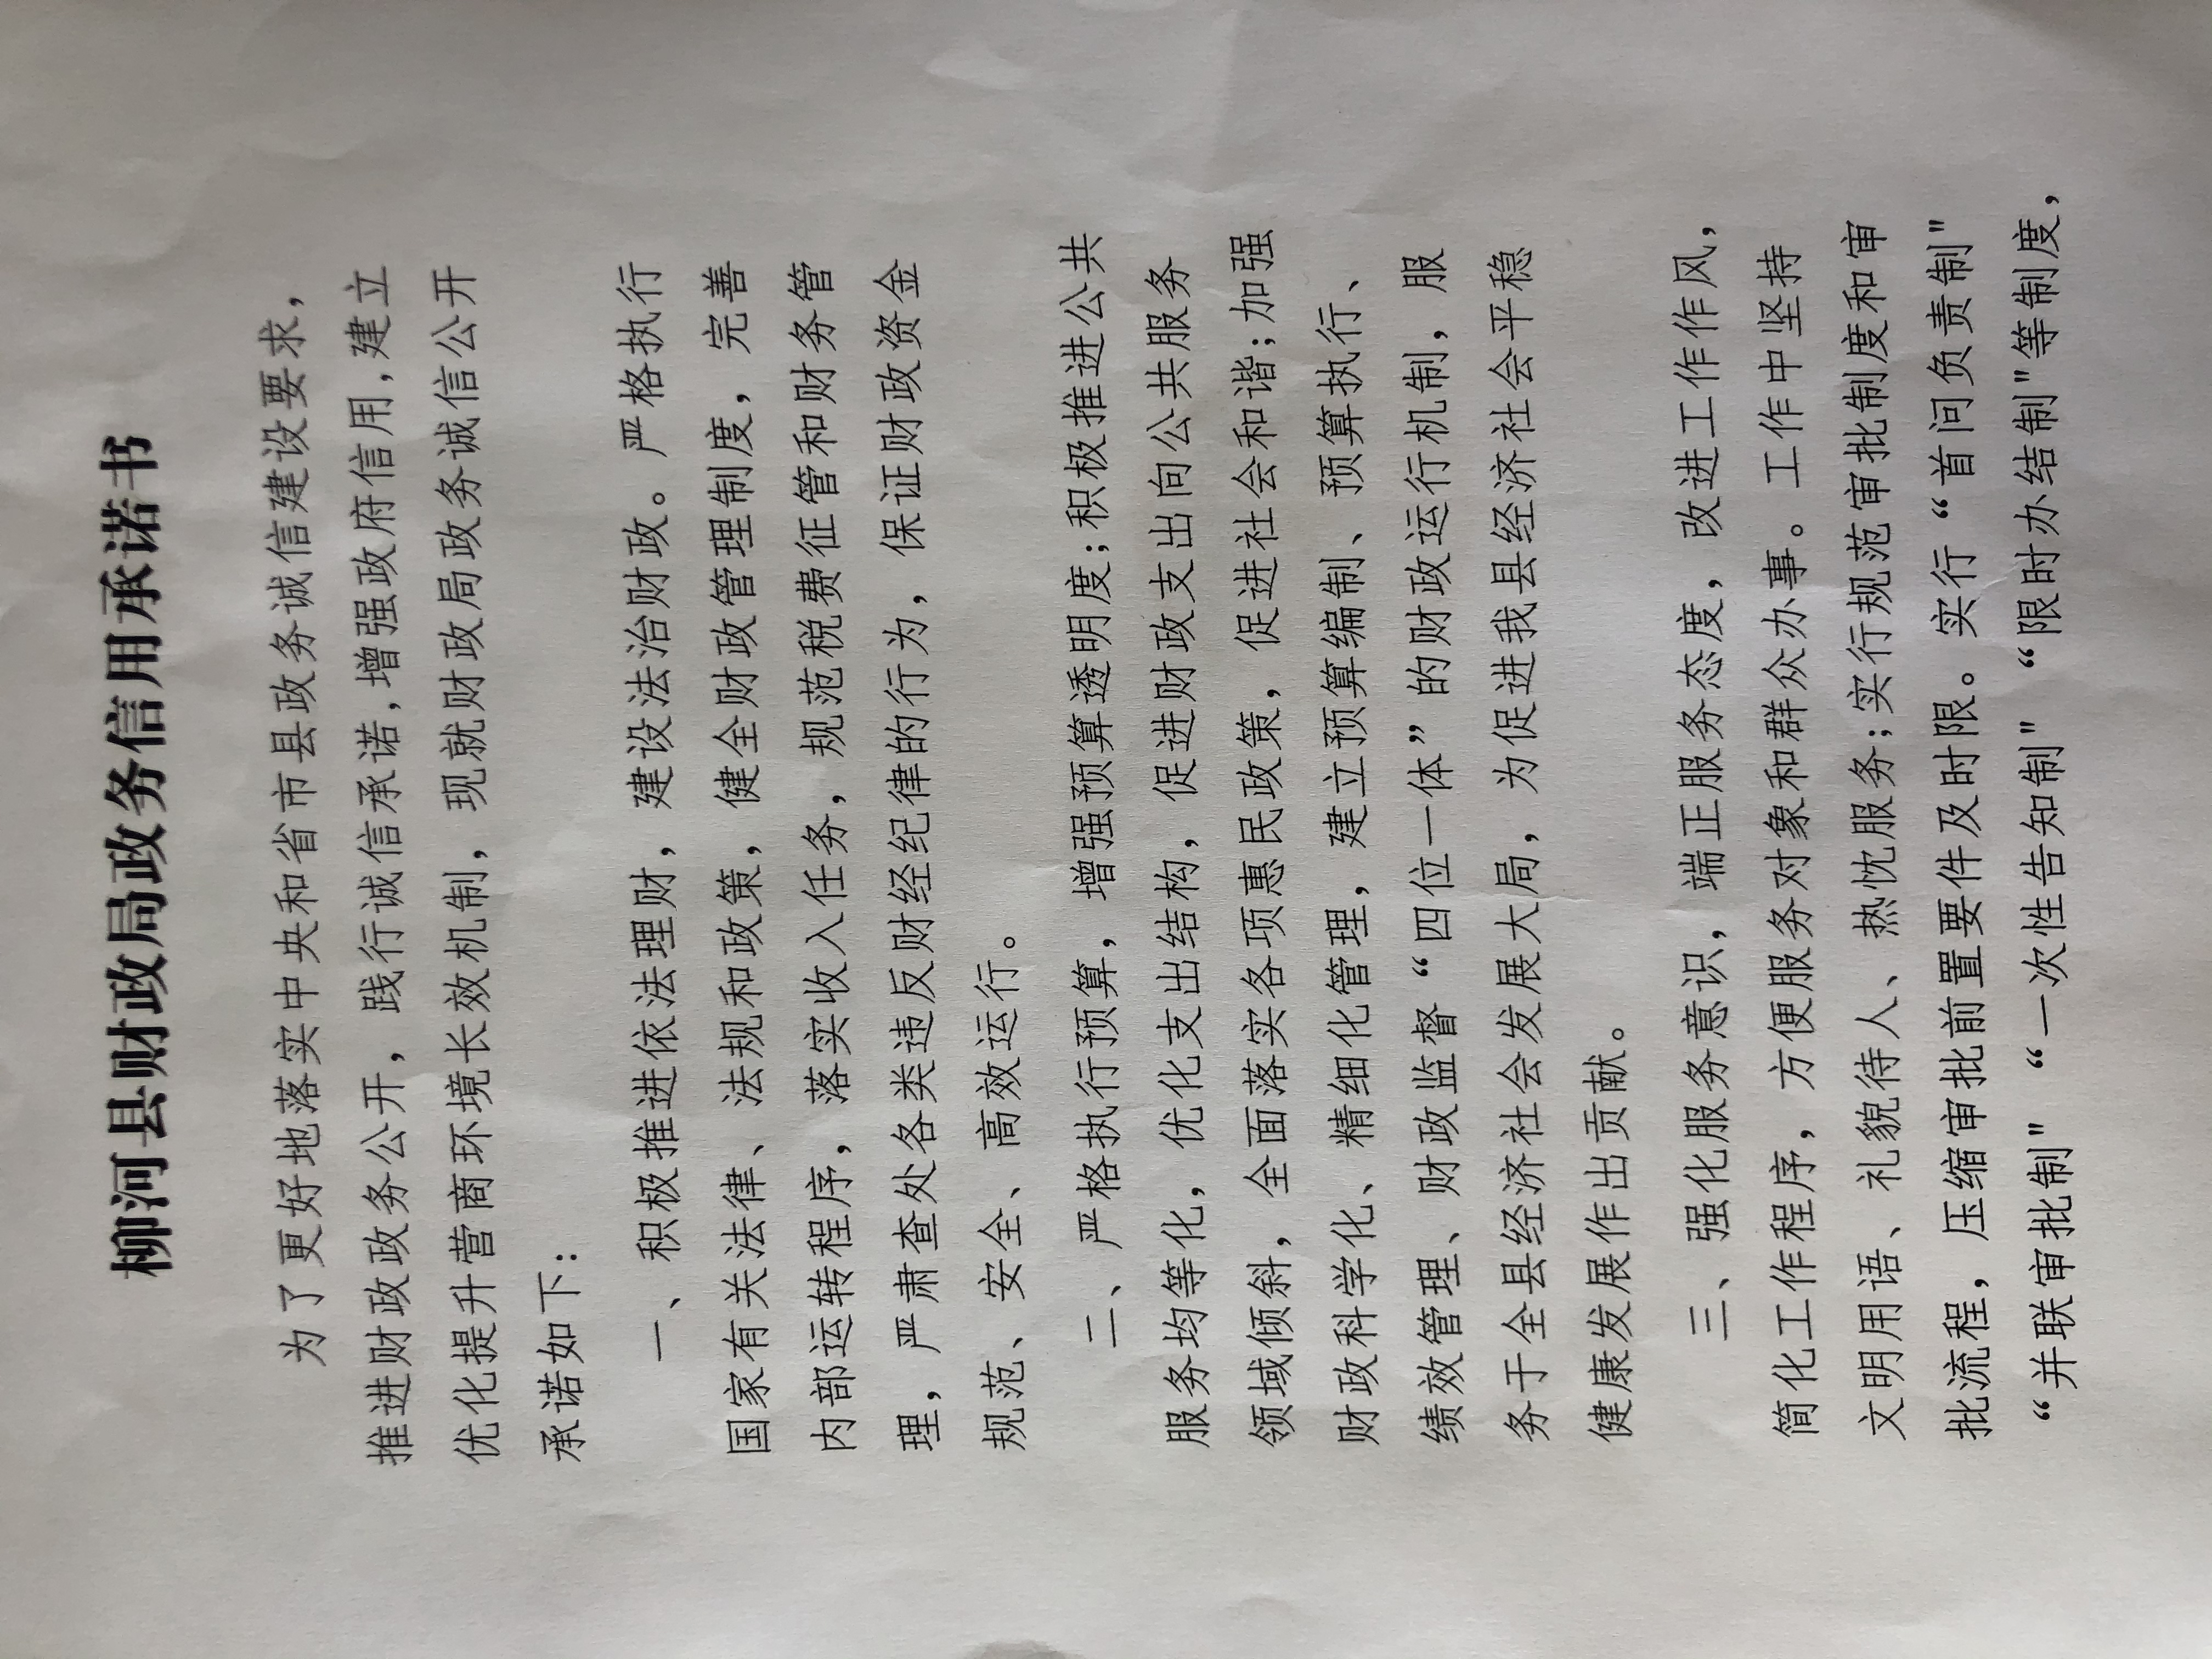 柳河县财政局政务信用承诺书
为了更好地落实中央和省市县政务诚信建设要求，
推进财政政务公开，践行诚信承诺,增强政府信用,建立
优化提升营商环境长效机制，现就财政局政务诚信公开
承诺如下：
一、积极推进依法理财，建设法治财政。严格执行
国家有关法律、法规和政策，健全财政管理制度，完善
内部运转程序，落实收入任务，规范税费征管和财务管
理，严肃查处各类违反财经纪律的行为，保证财政资金
规范、安全、高效运行。
二、严格执行预算，增强预算透明度;积极推进公共
服务均等化，优化支出结构，促进财政支出向公共服务
领域倾斜，全面落实各项惠民政策，促进社会和谐;加强
财政科学化、精细化管理，建立预算编制、预算执行、
绩效管理、财政监督“四位一体”的财政运行机制，服
务于全县经济社会发展大局，为促进我县经济社会平稳
健康发展作出贡献。
三、强化服务意识，端正服务态度，改进工作作风，
简化工作程序，方便服务对象和群众办事。工作中坚持
文明用语、礼貌待人、热忱服务;实行规范审批制度和审
批流程，压缩审批前置要件及时限。实行“首问负责制"
“并联审批制"“一次性告知制"“限时办结制"等制度，